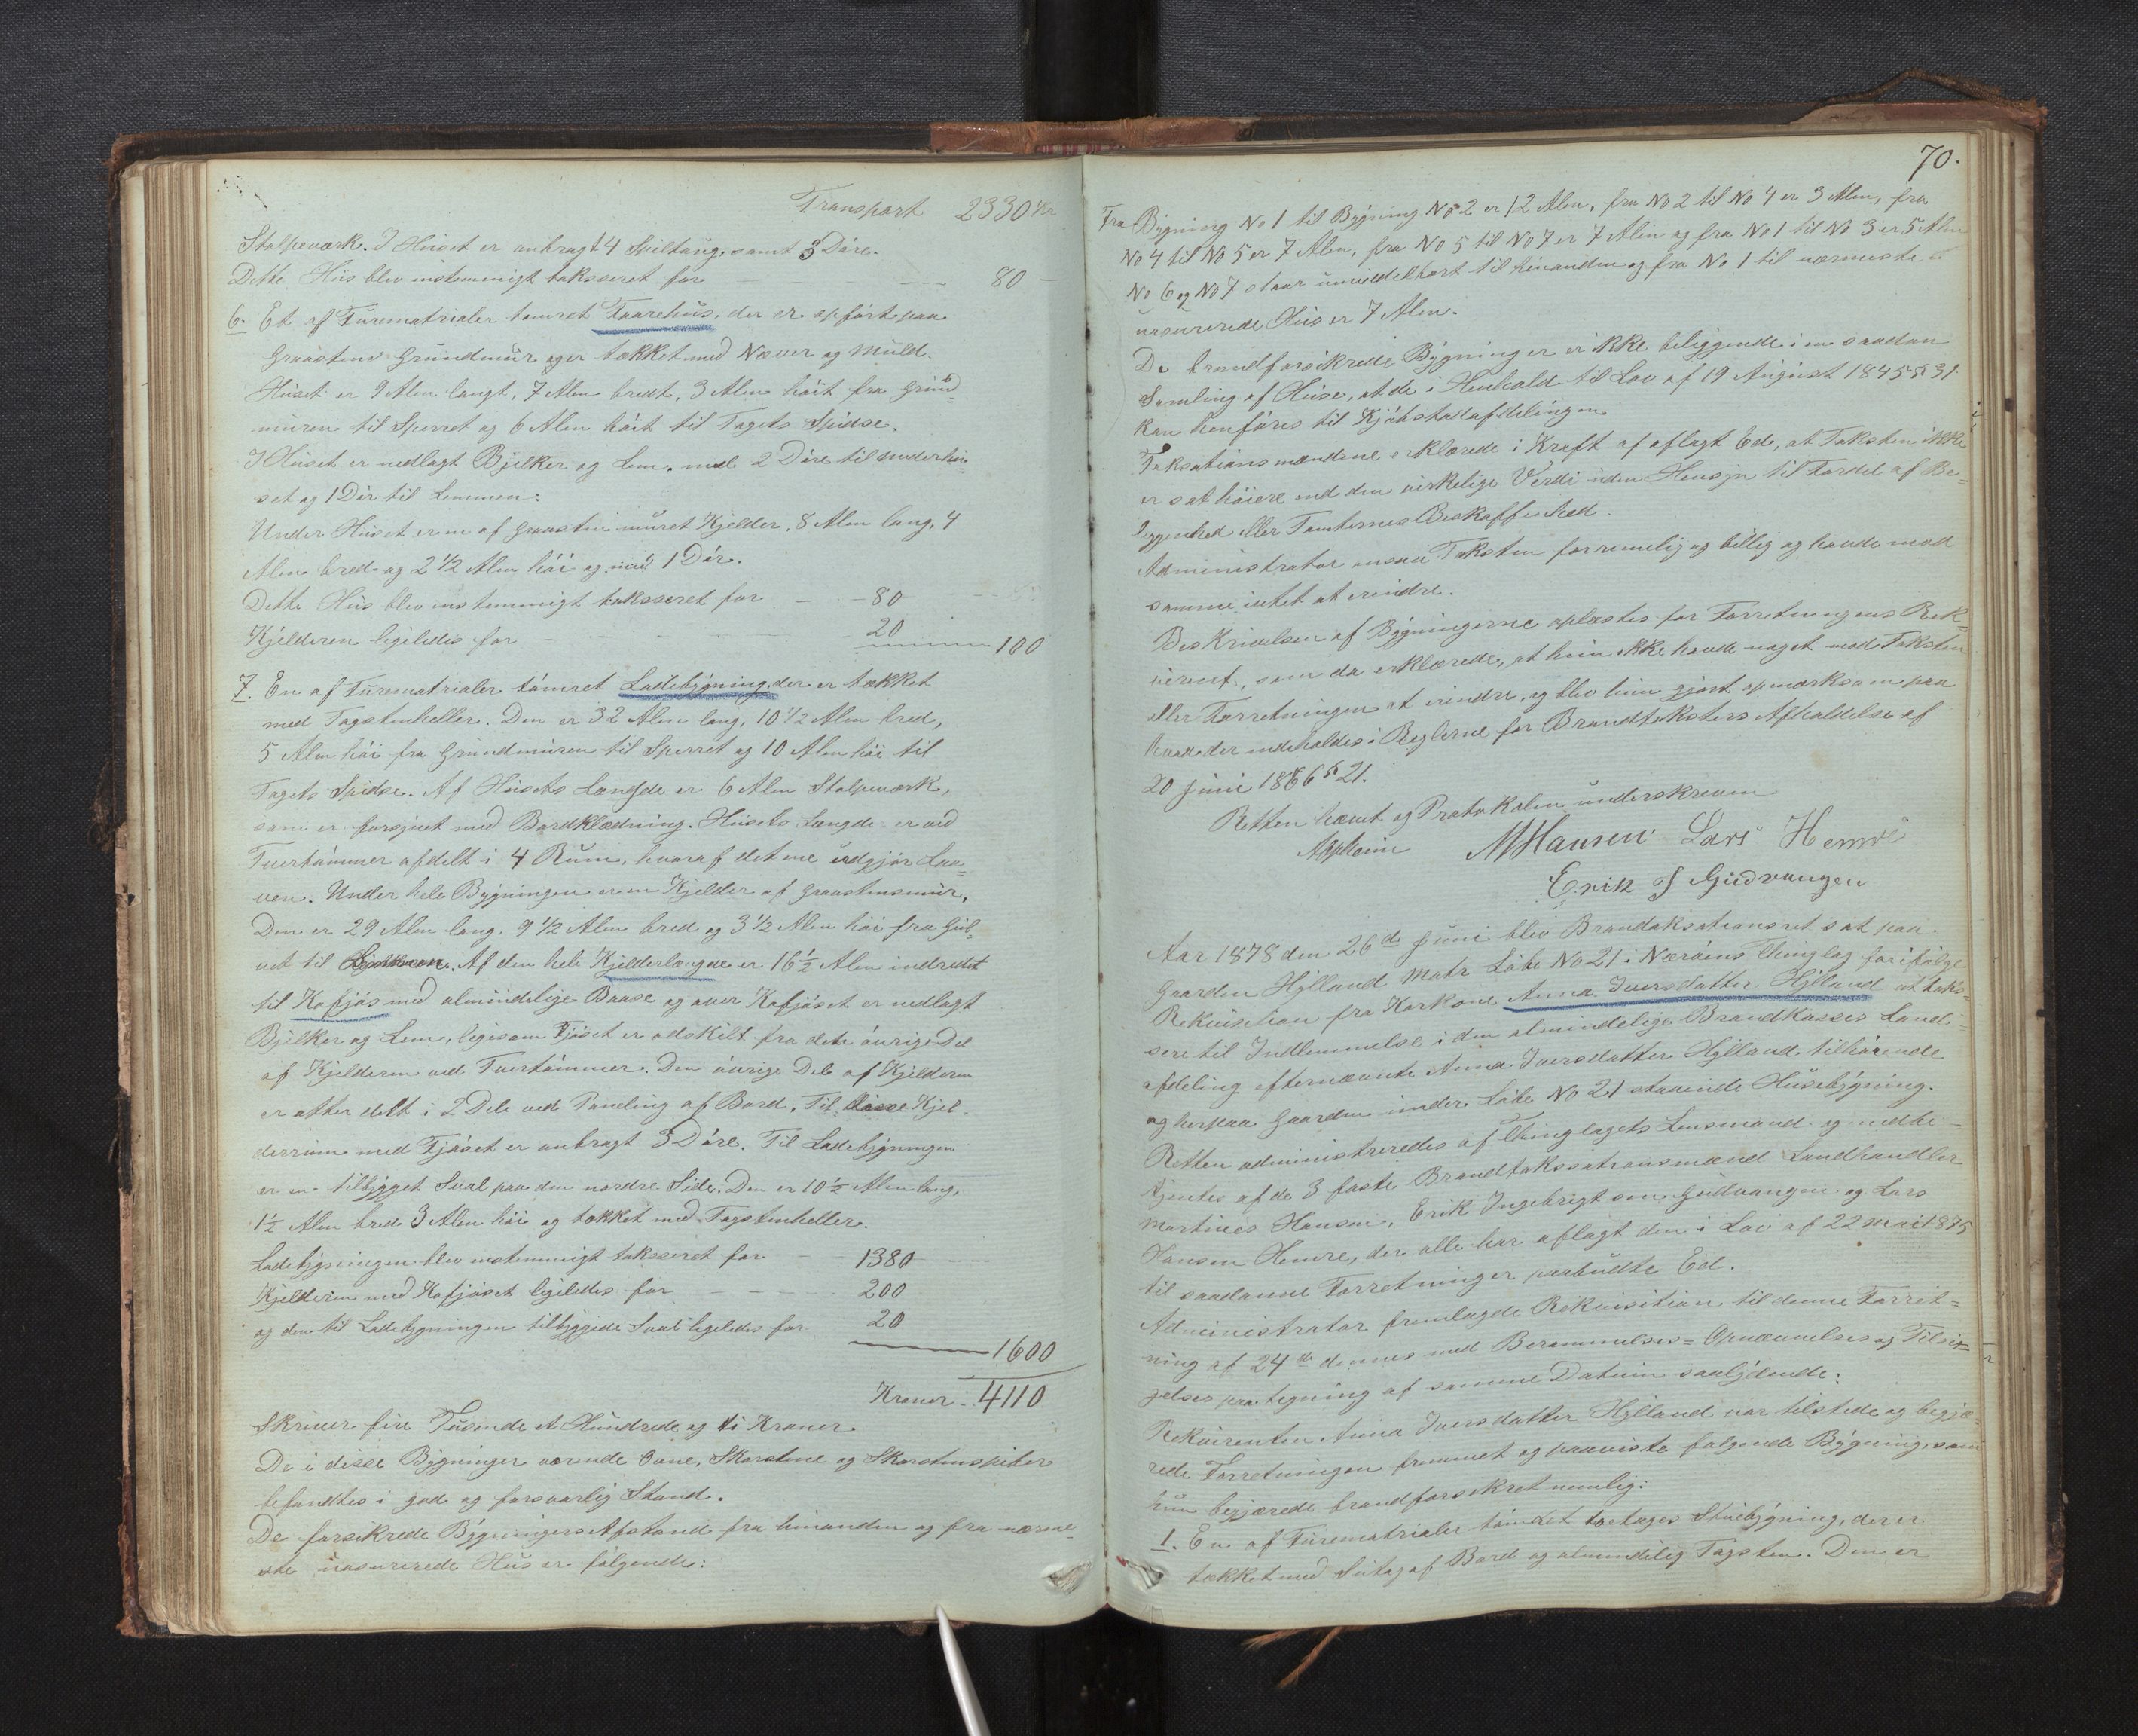 Transport 2330 Kr
Stolpeværk. I Huset er anbragt 4 Spiltaug, samt 3 Döre.
Dette Hus blev enstemmigt taksseret for 80
6. Et af Furematrialer tömret Faarehus, der er opfört paa
Graastens Grundmur og er tækket med Næver og Muld.
Huset er 9 Alen langt, 7 Alen bredt, 3 Alen höit fra Grund=
muren til Sperret og 6 Alen höit til Tagets Spidse.
I Huset er nedlagt Bjelker og Lem. med 2 Döre til underhu=
set og 1 Dör til Lemmen.
Under Huset er en af Graasten muret Kjelder, 8 Alen lang, 4
Alen bred og 2 1/2 Alen höi og med 1 Dör.
Dette Hus blev enstemmigt taksseret for 80
Kjelderen ligeledes for 20
100
7. En af Furematrialer tömret Ladebygning, der er tækket
med Tagstenheller. Den er 32 Alen lang, 10 1/2 Alen bred,
5 Alen höi fra Grundmuren til Sperret og 10 Alen höi til
Tagets Spidse. Af Husets Længde er 6 Alen Stolpeværk,
som er forsynet med Bordklædning. Husets Længde er ved
Tvertömmer afdelt i 4 Rum, hvoraf det ene udgjör Laa=
ven. Under hele Bygningen er en Kjelder af Graastensmur,
Den er 29 Alen lang. 9 1/2 Alen bred og 3 1/2 Alen höi fra Gul=
vet til Bjelkerne. Af den hele Kjelderlængde er 16 1/2 Alen indredet
til Kofjös med almindelige Baase og over Kofjöset er nedlagt
Bjelker og Lem, ligesom Fjöset er adskilt fra dete övrige Del
af Kjelderen ved Tvertömmer. Den övrige Dele af Kjelderen
er atter delt i 2 Dele ved Paneling af Bord. Til disse Kjel=
derrum med Fjöset er anbragt 3 Döre. Til Ladebygningen
er en tilbygget Sval paa den nordre Side. Den er 10 1/2 Alen lang,
1 1/2 Alen bred 3 Alen höi og tækket med Tagstenheller.
Ladebygningen blev enstemmigt taksseret for 1380
Kjelderen med Kofjöset ligeledes for 200
og den til Ladebygningen tilbyggede Sval ligeledes for 20
1600
Kroner 4110
Skriver fire Tusende et Hundrede og ti Kroner.
De i disse Bygninger værende Ovne, Skorstene og Skorstenspiber
befandtes i god og forsvarlig Stand.
De forsikrede Bygningers Afstand fra hinanden og fra nærme=
ste uasurerede Hus er fölgende:
70.
Fra Bygning No 1 til Bygning No 2 er 12 Alen, fra No 2 til No 4 er 3 Alen, fra
No 4 til No 5 er 7 Alen, fra No 5 til No 7 er 7 Alen og fra No 1 til No 3 er 5 Alen
No 6 og No 7 staar umiddelbart til hinanden og fra No 1 til nærmeste
uasurerede Hus er 7 Alen.
De brandforsikrede Bygninger er ikke beliggende i en saadan
Samling af Huse, at de i Henhold til Lov af 19 August 1845 § 31
kan henföres til Kjöbstadafdelingen
Taksationsmændene erklærede i Kraft af aflagt Ed, at Taksten ikke
er sat höiere end den virkelige Verdi uden Hensyn til Fordel af Be=
liggenhed eller Tomternes Beskaffenhed.
Administrator ansaa Taksten for rimelig og billig og havde mod
samme intet at erindre.
Beskrivelsen af Bygningerne oplæstes for Forretningens Rek=
virent, som da erklærede, at hun ikke havde noget mod Taksten
eller Forretningen at erindre, og blev hun gjort opmærksom paa
hvad der indeholdes i Reglerne for Brandtaksters Afholdelse af
20 Juni 1866 § 21.
Retten hævet og Protokolen underskreven
M Hansen Lars Hemre
Erik J Gudvangen
Aar 1878 den 26de Juni blev Brandtaksationsret sat paa
Gaarden Hylland Matr Löbe No 21 i Næröens Thinglag for ifölge
Rekvisition fra Korkone Anna Iversdatter Hylland at taks=
sere til Indlemmelse i den almindelige Brandkasses Land=
afdeling efternævnte Anna Iversdatter Hylland tilhörende
og her paa Gaarden under Löbe No 21 staaende Husebygning.
Retten administreredes af Thinglagets Lensmand og medbe=
tjentes af de 3 faste Brandtaksationsmænd Landhandler
Martines Hansen, Erik Ingebrigtsen Gudvangen og Lars
Hansen Hemre, der alle har aflagt den i Lov af 22 Mai 1875
til saadanne Forretninger paabudte Ed.
Administrator fremlagde Rekvisition til denne Forret=
ning af 24de dennes med Berammelses= Opnævnelses og Tilsi=
gelses paategning af samme Datum saalydende:
Rekvirenten Anna Iversdatter Hylland var tilstede og begjæ=
rede Forretningen fremmet og paaviste fölgende Bygning, som
hun begjærede brandforsikret nemlig:
1. En af Furematrialer tömret toetages Stuebygning, der er
tækket med Sutag af Bord og almindelig Tagsten. Den er